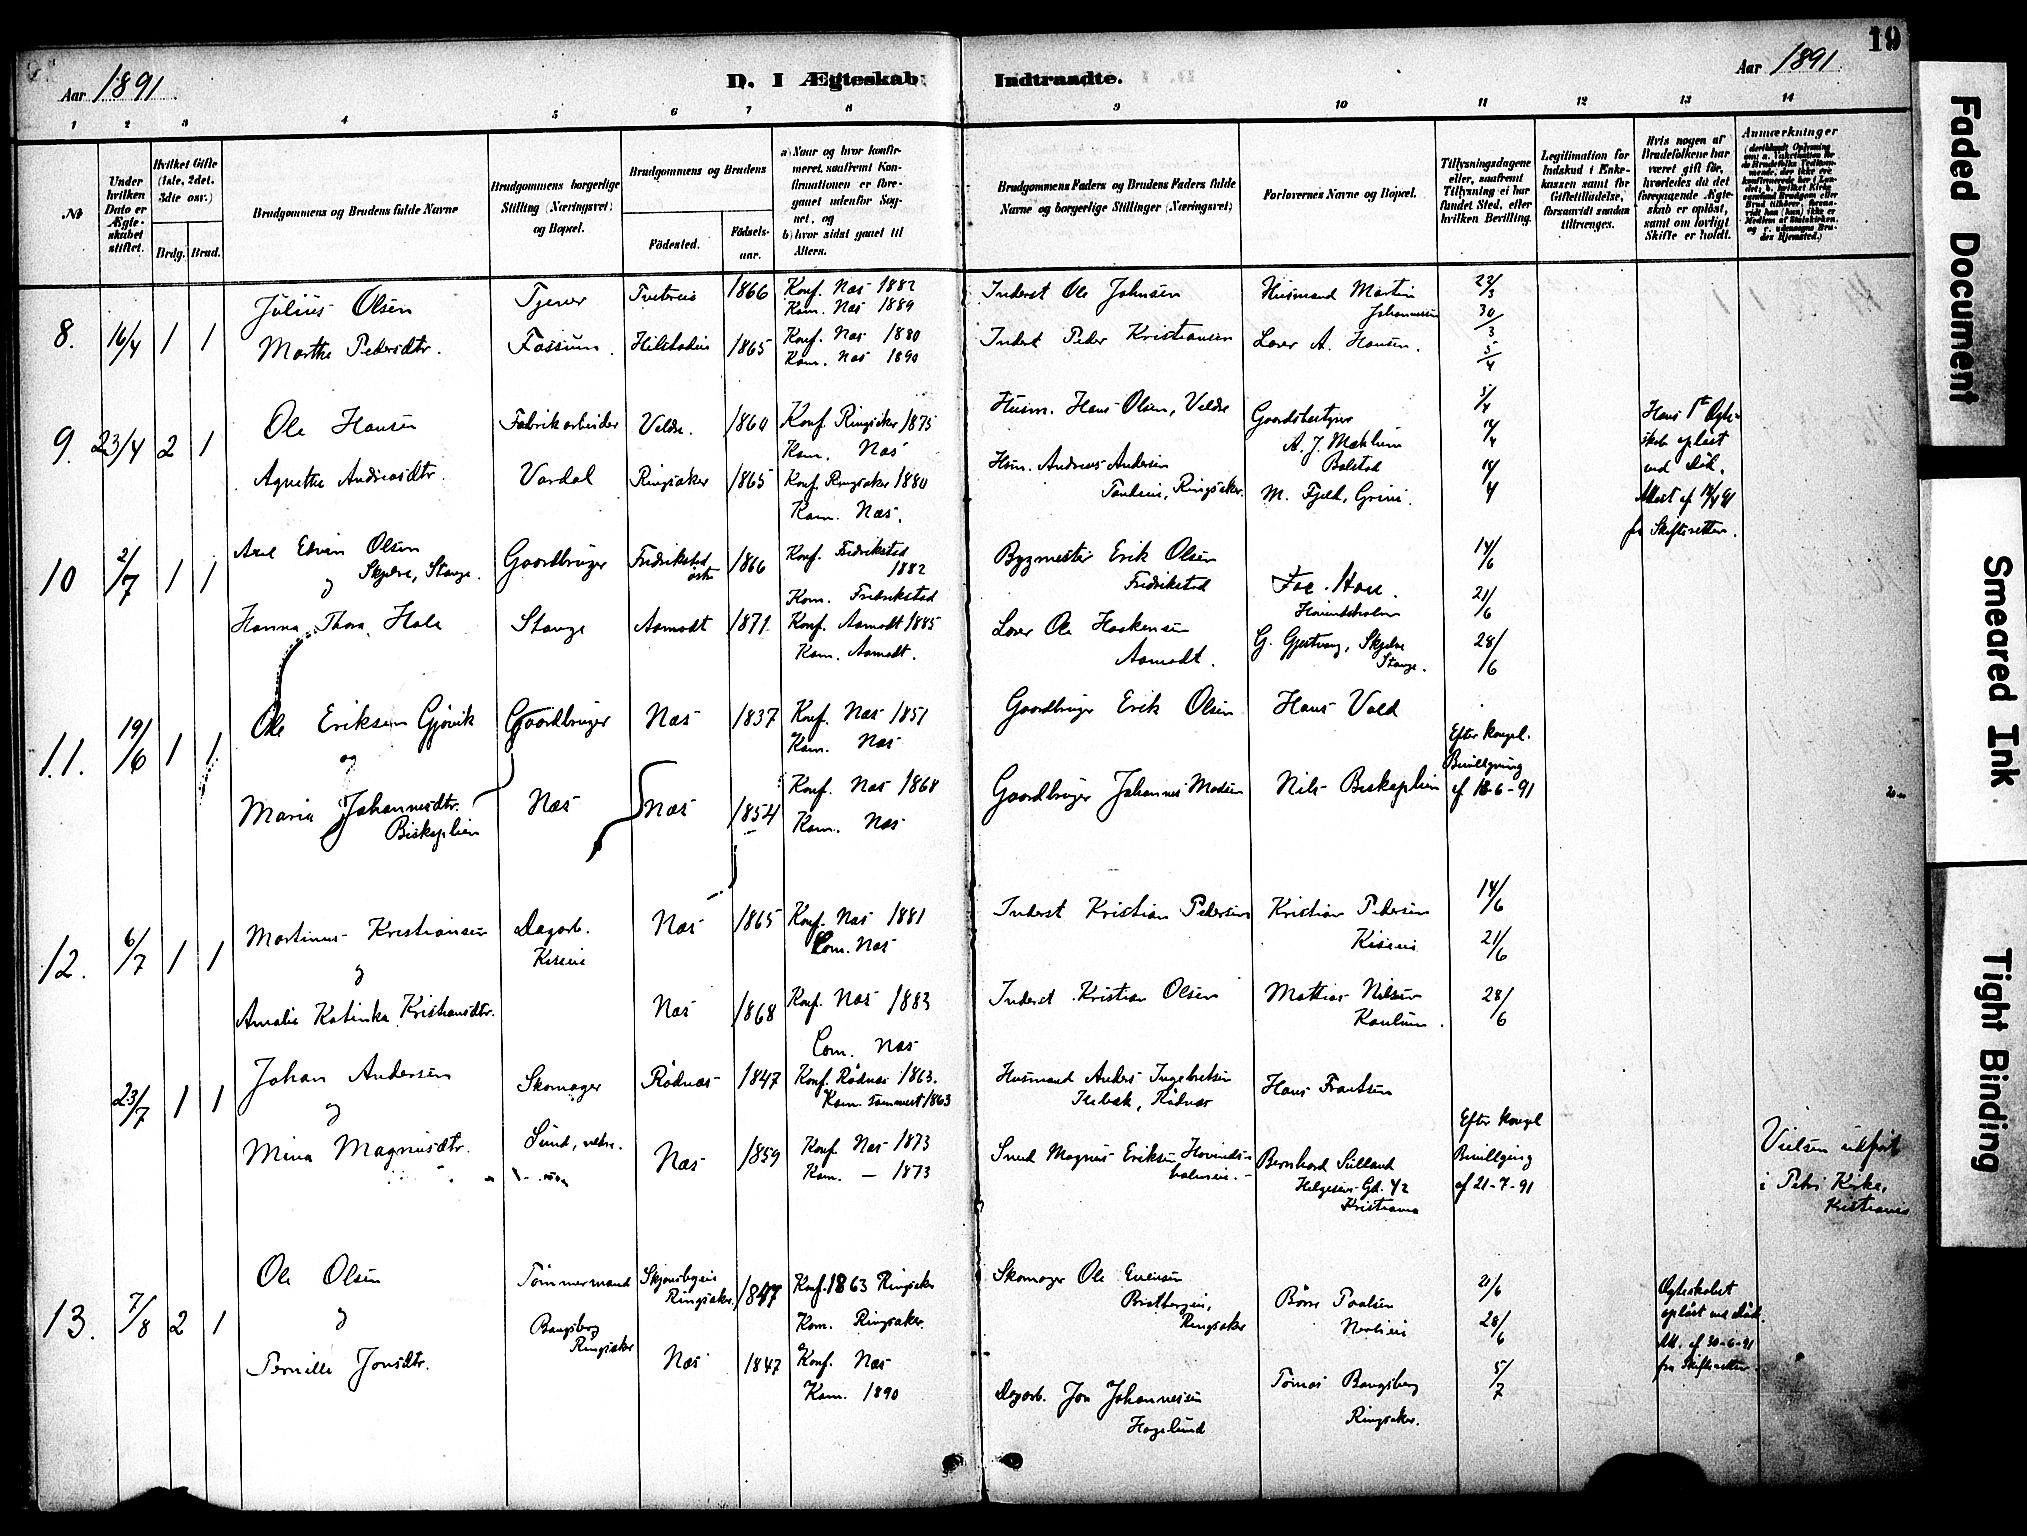 19
Aar 1891
D. I Ægteskab
Indtraadte.
Aar 1891
1 2 3 4 5 6 7 8 9 10 11 12 13 14
№
Under hvilken Dato er Ægteskabet stiftet.
Hvilket Gifte (1ste, 2det, 3die osv.)
Brdg. Brud.
Brudgommens og Brudens fulde Navne
Brudgommens borgerlige Stilling (Næringsvei) og Bopæl.
Brudgommens og Brudens
Fødested.
Fødsels-aar.
a) Naar og hvor konfirmeret, saafremt Konfirmationen er foregaaet udenfor Sognet, og
b) hvor sidst gaaet til Alters.
Brudgommens Faders og Brudens Faders fulde Navne og borgerlige Stillinger (Næringsvei)
Forlovernes Navne og Bopæl.
Tillysningsdagene eller, saafremt Tillysning ei har fundet Sted, efter hvilken Bevilling.
Legitimation for Indskud i Enkekassen samt for Giftetilladelse, forsaavidt saadan tiltrænges.
Hvis nogen af Brudefolkene har været gift før, hvorledes da det foregaaende Ægteskab er opløst, samt om lovligt Skifte er holdt.
Anmærkninger
8. 16/4 1 1
Julius Olsen
Marthe Pedersdtr.
Tjener
Fossum.
1866
1865
Konf. Næs 1882
Kom. Næs 1889
Konf. Næs 1880
Kom. Næs 1890
Inderst Ole Johnsen
Inderst Peder Kristiansen
Husmand Martin
Johannessen
A. Hansen.
22/3
30/3
5/4
9. 23/4 2 1
Ole Hansen
Agnethe Andreasdtr.
Fabrikarbeider
Vardal
Veldre.
Ringsaker
1860
1865
Konf. Ringsaker 1875
Kom. Næs
Konf. Ringsaker 1880
Kom. Næs.
Husm. Hans Olsen, Veldre
Husm. Andreas Andersen
Ringsaker.
Gaardsbestyrer
A. J. Mæhlum
Balstad
M. Fjeld, Grini.
5/4
12/4
19/4
Hans 1ste Ægte-
skab opløst
ved Død.
Attest af 14/4 91
fra Skifteretten.
10 2/7 1 1
Axel Edvin Olsen
Skjelve, Stange.
og
Hanna Thora Hole
Gaardbruger
Stange
Fredrikstad
Aamodt
1866
1871
Konf. Fredrikstad
1882
Kom. Fredrikstad
Konf. Aamodt 1885
Kom. Aamodt.
Bygmester Erik Olsen
Fredrikstad
Ole Haakensen
Aamodt.
Hovindsholm
G. Gjestvang, Skjelve
Stange.
14/6
21/6
28/6
11. 19/6 1 1
Ole Eriksen Gjøvik
og
Maria Johannesdtr.
Biskoplien
Gaardbruger
Næs
Næs
Næs
1837
1854
Konf. Næs 1851
Kom. Næs
Konf. Næs 1868
Kom. Næs
Gaardbruger Erik Olsen
Gaardbruger Johannes Madsen
Hans Vold
Nils Biskoplien
Efter kongel.
Bevillgning
af 18-6-91
12. 6/7 1 1
Martinus Kristiansen
og
Amalie Katinka Kristiansdtr.
Dagarb.
Kiseie
Næs
Næs
1865
1868
Konf. Næs 1881
Com. Næs
Konf. Næs 1883
Com. Næs
Inderst Kristian Pedersen
Inderst Kristian Olsen
Kristian Pedersen
Kiseie
Mathias Nilsen
14/6
21/6
28/6
23/7 1 1
Johan Andersen
og
Mina Magnusdtr.
Skomager
Sund,
Rødnæs
Næs
1847
1859
Konf. Rødnæs 1863.
Kom. 1863
Konf. Næs 1873
Kom. — 1873
Husmand Anders Ingebretsen
Rødnæs
Smed Magnus Eriksen Hovinds-
holmeie.
Hans Frantsen
Bernhard Sulland
Helgesens Gd. 42
Kristiania
Efter kongel
Bevillgning
af 21-7-91
Vielsen udført
i Petri Kirke,
Kristiania
13. 7/8 2 1
Ole Olsen
og
Pernille Jonsdtr.
Tømmermand
Bangsberg
Ringsaker
Ringsaker.
Næs
1847
1847
Konf. 1863 Ringsaker
Kom. Ringsaker.
Konf. Næs
Kom. 1890
Skomager Ole Evensen
Ringsaker
Dagarb. Jon Johannessen
Hagelund
Børre Paalsen
Tomas Bangsberg
Ringsaker.
21/6
28/6
5/7
Ægteskabet
opløst ved Død.
Att. af 30-6-91
fra Skifteretten.
Faded Document
Smeared Ink
Tight Binding